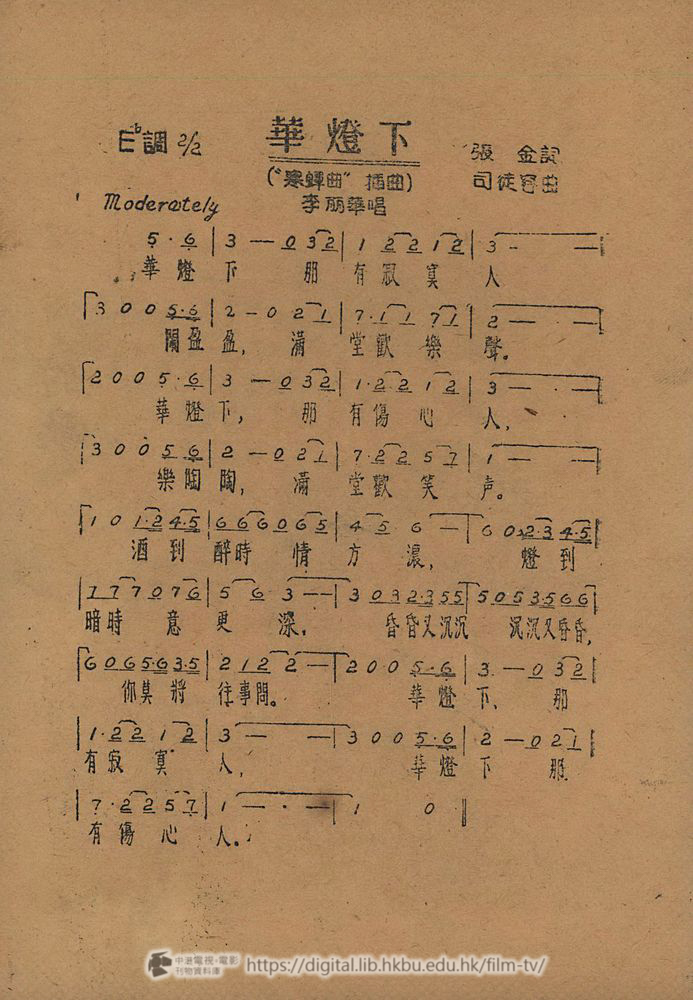 華燈下
E♭調 2/2
("寒蟬曲" 插曲)
李丽華唱
張金詞
司徒容曲
Moderately
5·6|3—032|12212|3———
華燈下 那有寂寞人
3005·6|2—021|7·1171|2———
鬧盈盈,滿堂歡樂聲。
2005·6|3—032|1·2212|3———
華燈下,那有傷心人,
30056|2—021|7·2257|1———
樂陶陶,滿堂歡笑声。
101·24·5|666065|456—|602·34·5
酒到醉時情方濃,燈到
777076|563—|3032·355|5053·566
暗時意更深。昏昏又沉沉 沉沉又昏昏,
6065·63·5|2122—|2005·6|3—032
你莫將往事問。華燈下、那
1·2212|3———|3005·6|2—021
有寂寞人,華燈下那
7·2257|1—·—|1 0
有傷心人。
中港電視·電影
刊物資料庫
https://digital.lib.hkbu.edu.hk/film-tv/